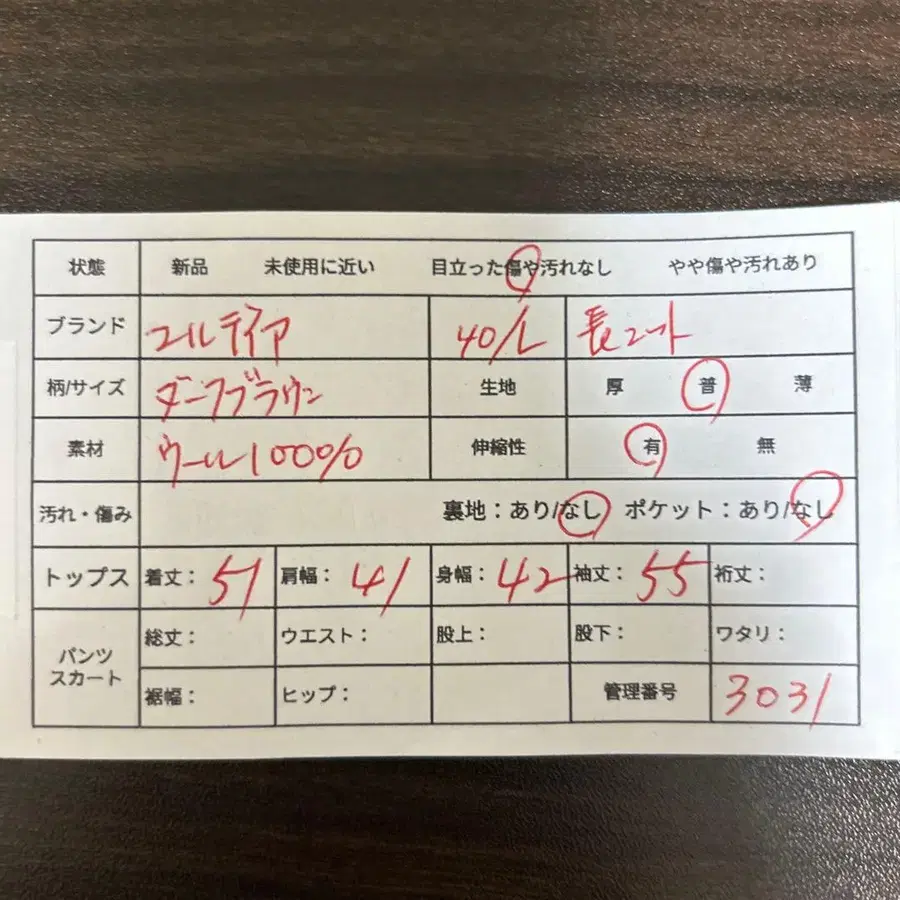 状態 新品 未使用に近い 目立った傷や汚れなし やや傷や汚れあり
ブランド コルディア 40/L 長コート
柄/サイズ ダークブラウン 生地 厚 普 薄
素材 ウール100% 伸縮性 有 無
汚れ・傷み 裏地:あり/なし ポケット:あり/なし
トップス 着丈: 51 肩幅: 41 身幅: 42 袖丈: 55 裄丈:
パンツ スカート 総丈: ウエスト: 股上: 股下: ワタリ:
裾幅: ヒップ: 管理番号 3031